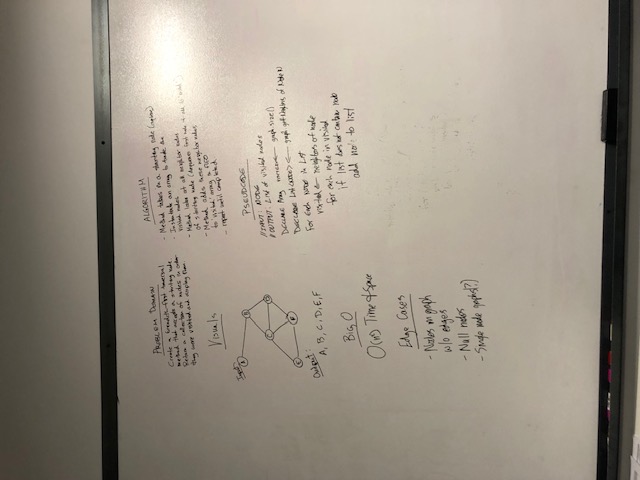 PROBLEM DOMAIN
Create a breadth-first traversal
method that accepts a starting node.
Return a collection of nodes in order
they were visited and display them
Visuals
Input:
A
B
C
D
E
F
Output:
A, B, C, D, E, F
Big O
O(n²) Time & Space
Edge Cases
- Nodes on graph
w/o edges
- Null nodes
- Single node graphs(?)
ALGORITHM
- Method takes in a starting node
- Instantiate an array to
visited nodes
- Method looks at all neighbor nodes
of starting node
- Method adds these neighbor nodes
to visited array
- repeat until completed
PSEUDOCODE
// INPUT: NODE
// OUTPUT: List of visited nodes
DECLARE Array ← graph.size()
DECLARE List<NODE> ← graph
For Each NODE in List
visited ← neighbors of node
for each node in visited
if list does not contain node
add to list